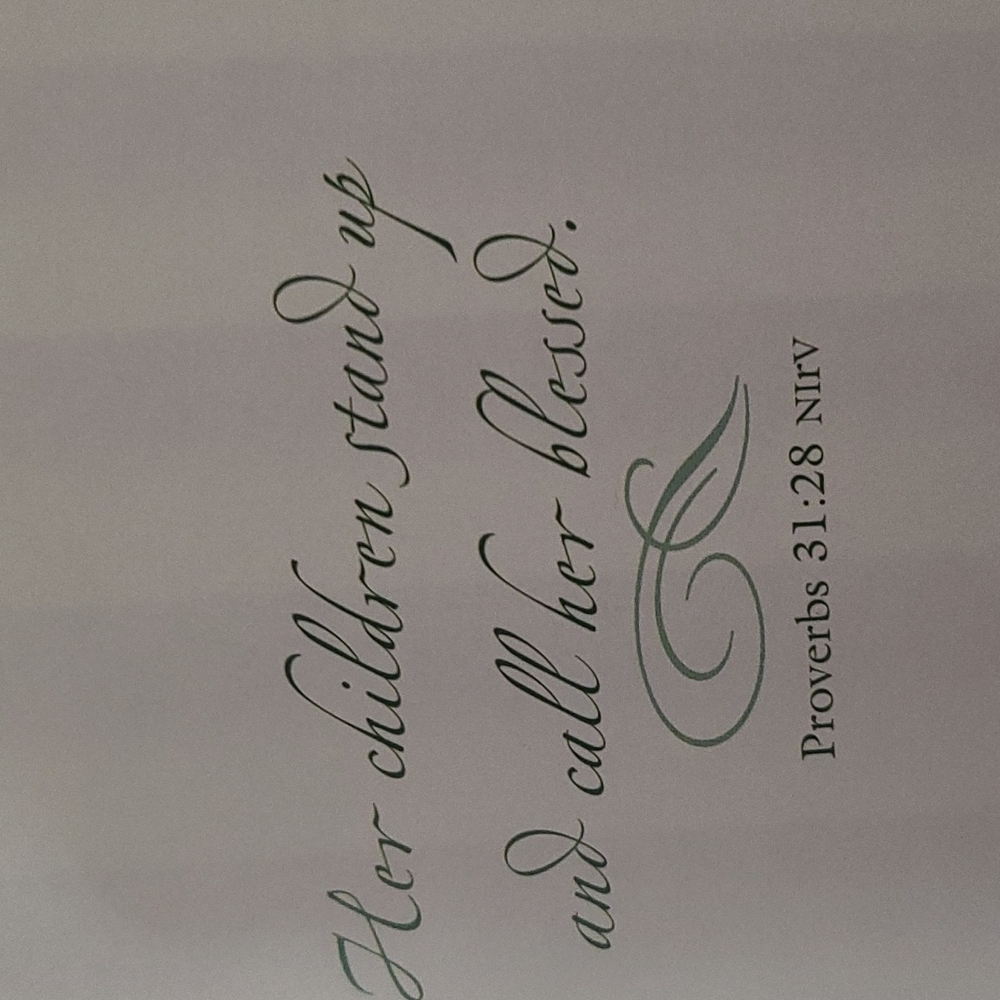 Her children stand up
and call her blessed.
Proverbs 31:28 NIrV